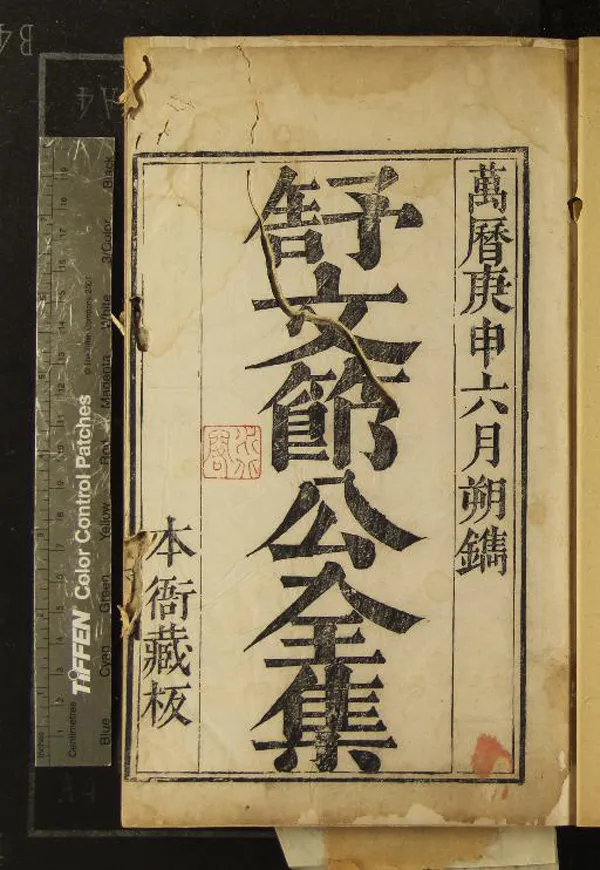 萬曆庚申六月朔鐫
舒文節公全集
本衙藏板
TIFFEN Color Control Patches
© The Tiffen Company, 2007
Centimetres
Inches
Blue Cyan Green Yellow Red Magenta White 3/Color Black
A4
B4